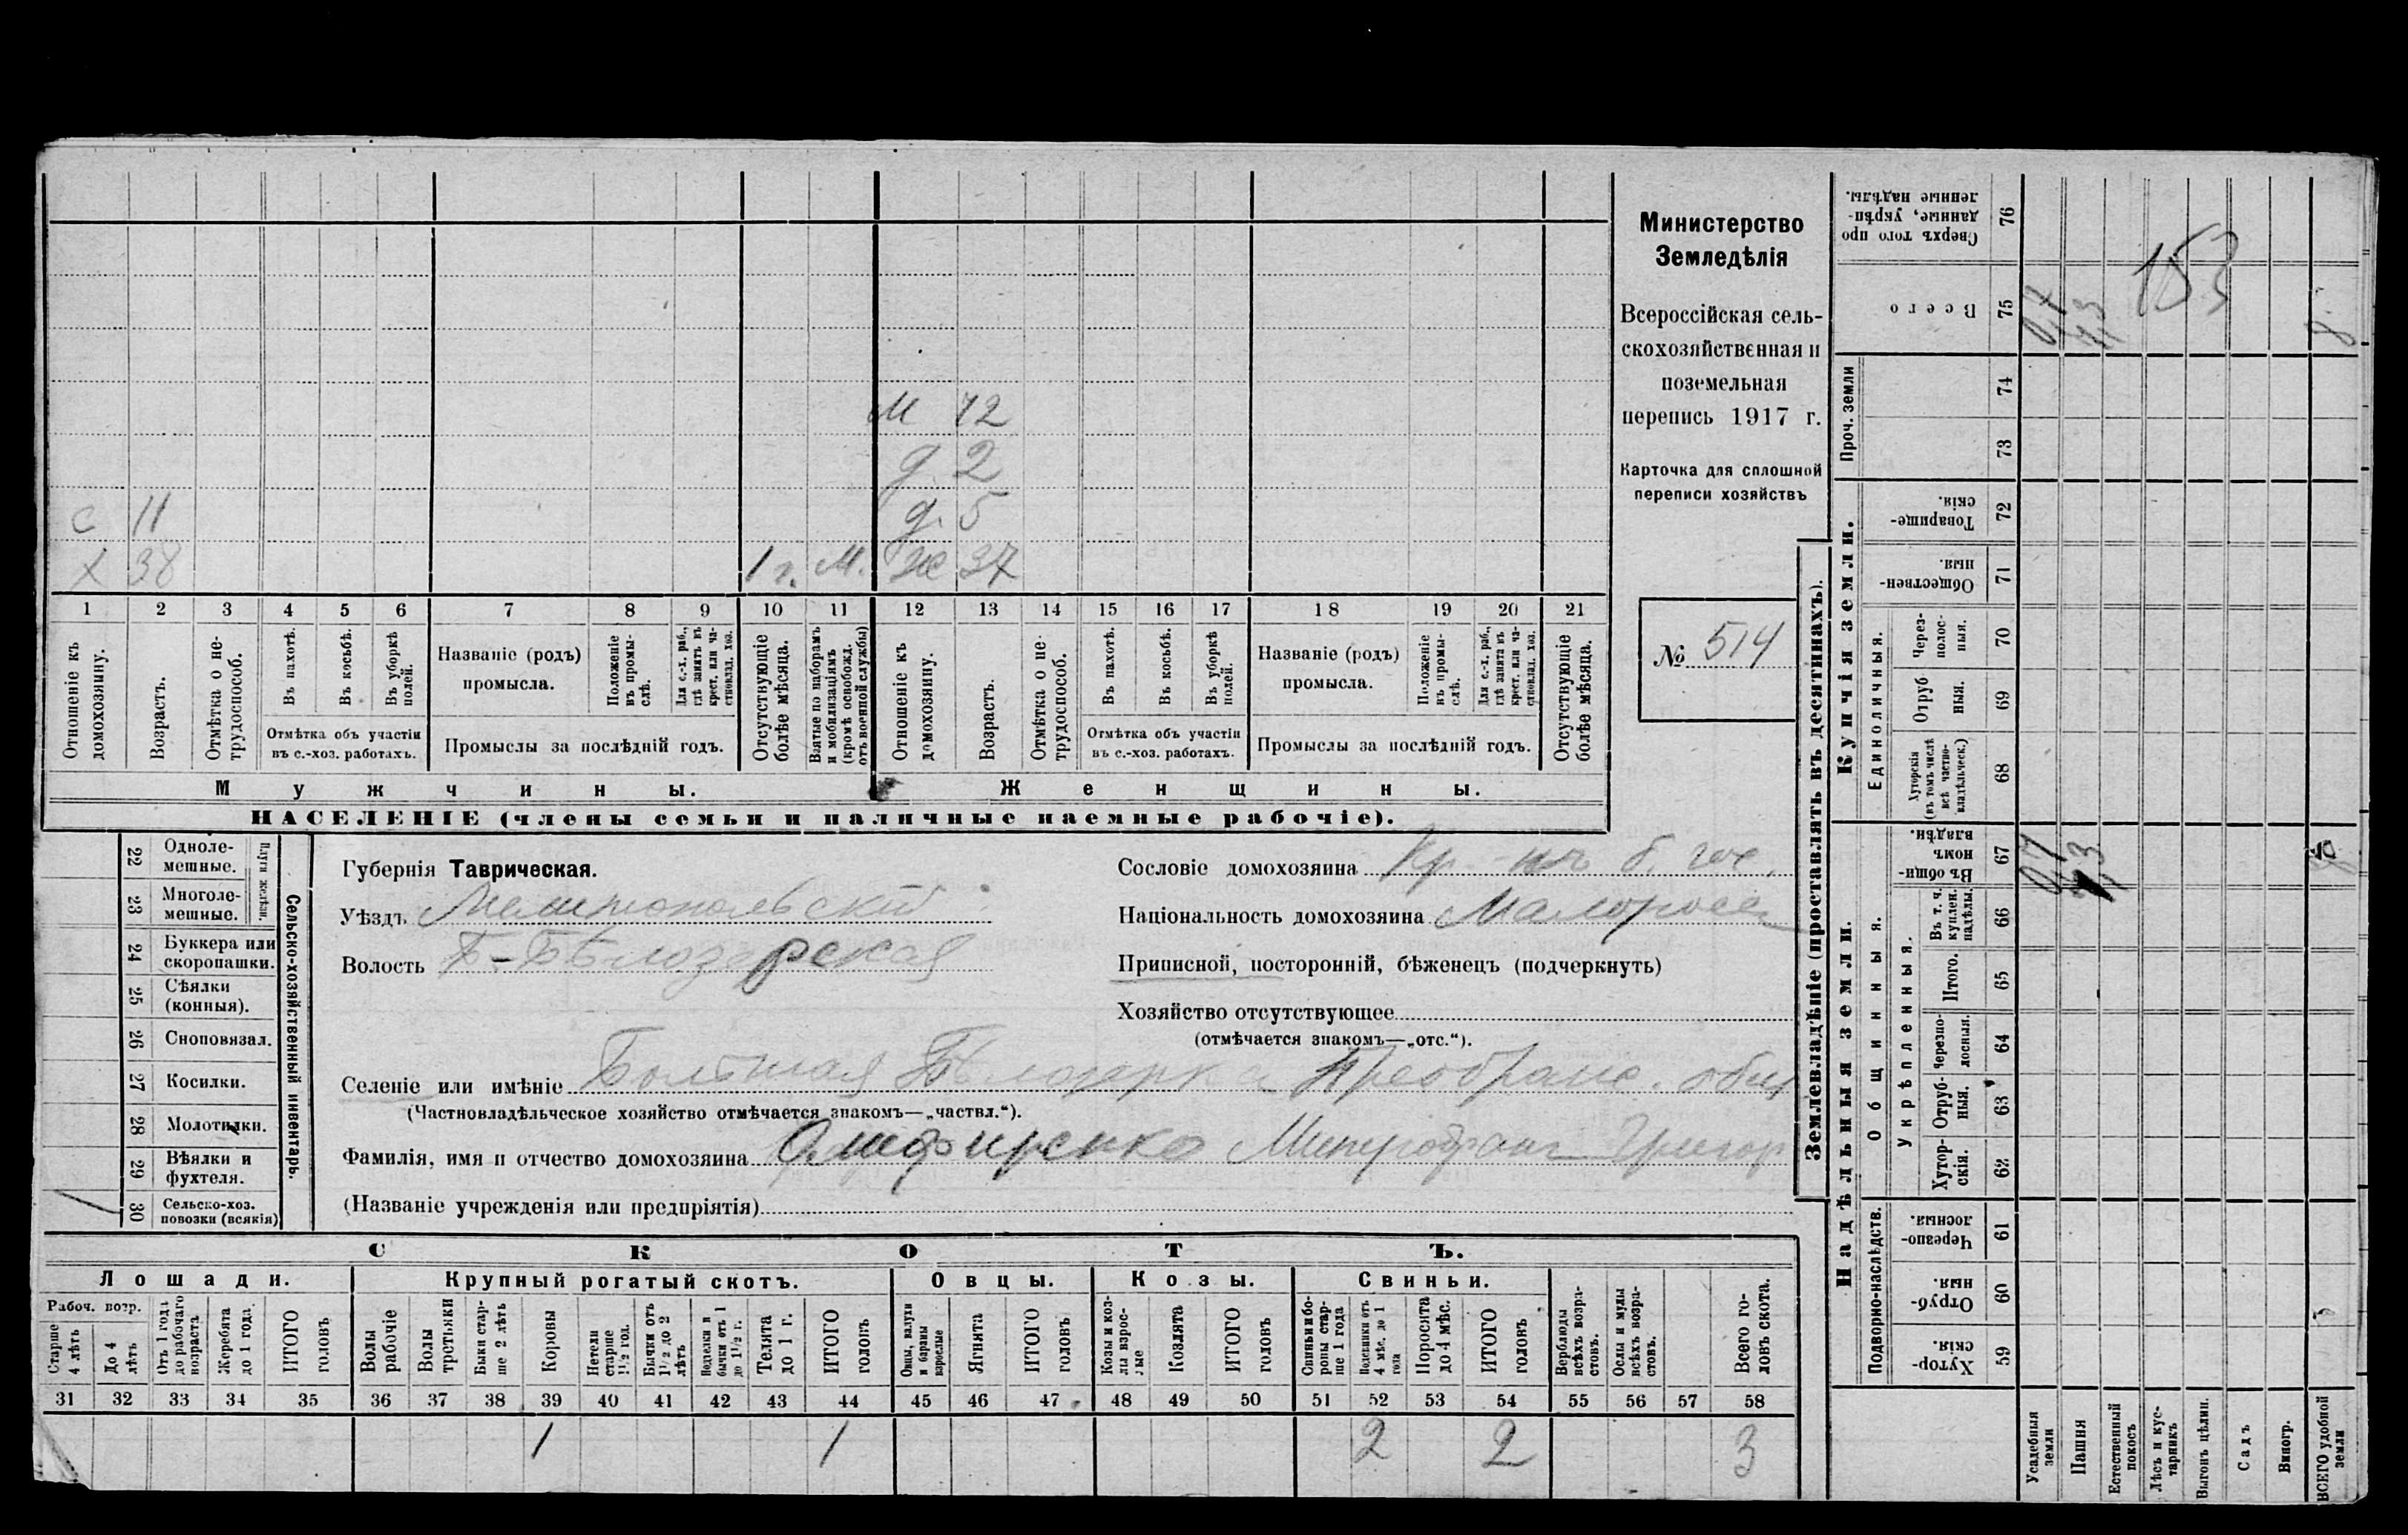 М 72
д. 2
с 11 д. 5
х 38 1 г. М. Ж 37
1 2 3 4 5 6 7 8 9 10 11 12 13 14 15 16 17 18 19 20 21
Отношеніе къ домохозяину.
Возрастъ.
Отмѣтка о не-трудоспособ.
Въ пахотѣ.
Въ косьбѣ.
Въ уборкѣ полей.
Отмѣтка объ участіи
въ с.-хоз. работахъ.
Названіе (родъ)
промысла.
Положеніе въ промы-слѣ.
Для с.-х. раб., гдѣ занятъ въ крест. или ча-стновлад. хоз.
Промыслы за послѣдній годъ.
Отсутствующіе болѣе мѣсяца.
Взятые по наборамъ и мобилизаціямъ (кромѣ освобожд. отъ военной службы)
Отношеніе къ домохозяину.
Возрастъ.
Отмѣтка о не-трудоспособ.
Въ пахотѣ.
Въ косьбѣ.
Въ уборкѣ полей.
Отмѣтка объ участіи
въ с.-хоз. работахъ.
Названіе (родъ)
промысла.
Положеніе въ промы-слѣ.
Для с.-х. раб., гдѣ занята въ крест. или ча-стновлад. хоз.
Промыслы за послѣдній годъ.
Отсутствующіе болѣе мѣсяца.
Мужчины. Женщины.
НАСЕЛЕНІЕ (члены семьи и наличные наемные рабочіе).
Министерство
Земледѣлія
Всероссійская сель-
скохозяйственная и
поземельная
перепись 1917 г.
Карточка для сплошной
переписи хозяйствъ
№ 514
22 Одноле-мешные.
23 Многоле-мешные.
Плуги желѣзн.
24 Буккера или скоропашки.
25 Сѣялки (конныя).
26 Сноповязал.
27 Косилки.
28 Молотилки.
29 Вѣялки и фухтеля.
1 30 Сельско-хоз. повозки (всякія)
Сельско-хозяйственный инвентарь.
Губернія Таврическая.
Уѣздъ Мелитопольскій
Волость Б-Бѣлозерская
Сословіе домохозяина Кр-нъ б. гос.
Національность домохозяина Малоросс
Приписной, посторонній, бѣженецъ (подчеркнуть)
Хозяйство отсутствующее
(отмѣчается знакомъ—„отс.“).
Селеніе или имѣніе Большая Бѣлозерка Преображ. общ
(Частновладѣльческое хозяйство отмѣчается знакомъ—„частвл.“).
Фамилія, имя и отчество домохозяина Олифиренко Митрофанъ Григор
(Названіе учрежденія или предпріятія)
СКОТЪ.
Лошади. Крупный рогатый скотъ. Овцы. Козы. Свиньи.
Рабоч. возр.
Старше 4 лѣтъ
До 4 лѣтъ
Отъ 1 года до рабочаго возраста
Жеребята до 1 года.
ИТОГО головъ
Волы рабочіе
Волы третьяки
Быки стар-ше 2 лѣтъ
Коровы
Нетели старше 1½ год.
Бычки отъ 1½ до 2 лѣтъ
Подтелки и бычки отъ 1 до 1½ г.
Телята до 1 г.
ИТОГО головъ
Овцы, валухи и бараны взрослые
Ягнята
ИТОГО головъ
Козы и коз-лы взрос-лые
Козлята
ИТОГО головъ
Свиньи и бо-ровы стар-ше 1 года
Подсвинки отъ 4 мѣс. до 1 года
Поросята до 4 мѣс.
ИТОГО головъ
Верблюды всѣхъ возра-стовъ.
Ослы и мулы всѣхъ возра-стовъ.
Всего го-ловъ скота.
31 32 33 34 35 36 37 38 39 40 41 42 43 44 45 46 47 48 49 50 51 52 53 54 55 56 57 58
1 1 2 2 3
Землевладѣніе (проставлять въ десятинахъ).
Надѣльныя земли.
Купчія земли.
Проч. земли
Сверхъ того про-данные, укрѣп-ленные надѣлы. 76
Всего 75
74
73
Товарище-скія. 72
Обществен-ныя. 71
Единоличныя.
Через-полос-ныя. 70
Отруб-ныя. 69
Хуторскія (въ томъ числѣ всѣ частно-владѣльческ.) 68
Общинныя.
Въ общи-номъ владѣн. 67
Укрѣпленныя.
Въ т. ч. куплен. надѣлы. 66
Итого. 65
Черезпо-лосныя. 64
Отруб-ныя. 63
Хутор-скія. 62
Подворно-наслѣдств.
Черезпо-лосныя. 61
Отруб-ныя. 60
Хутор-скія. 59
153
Усадебныя земли
Пашня
Естественный покосъ
Лѣсъ и кус-тарникъ
Выгонъ цѣлин.
Садъ
Виногр.
ВСЕГО удобной земли